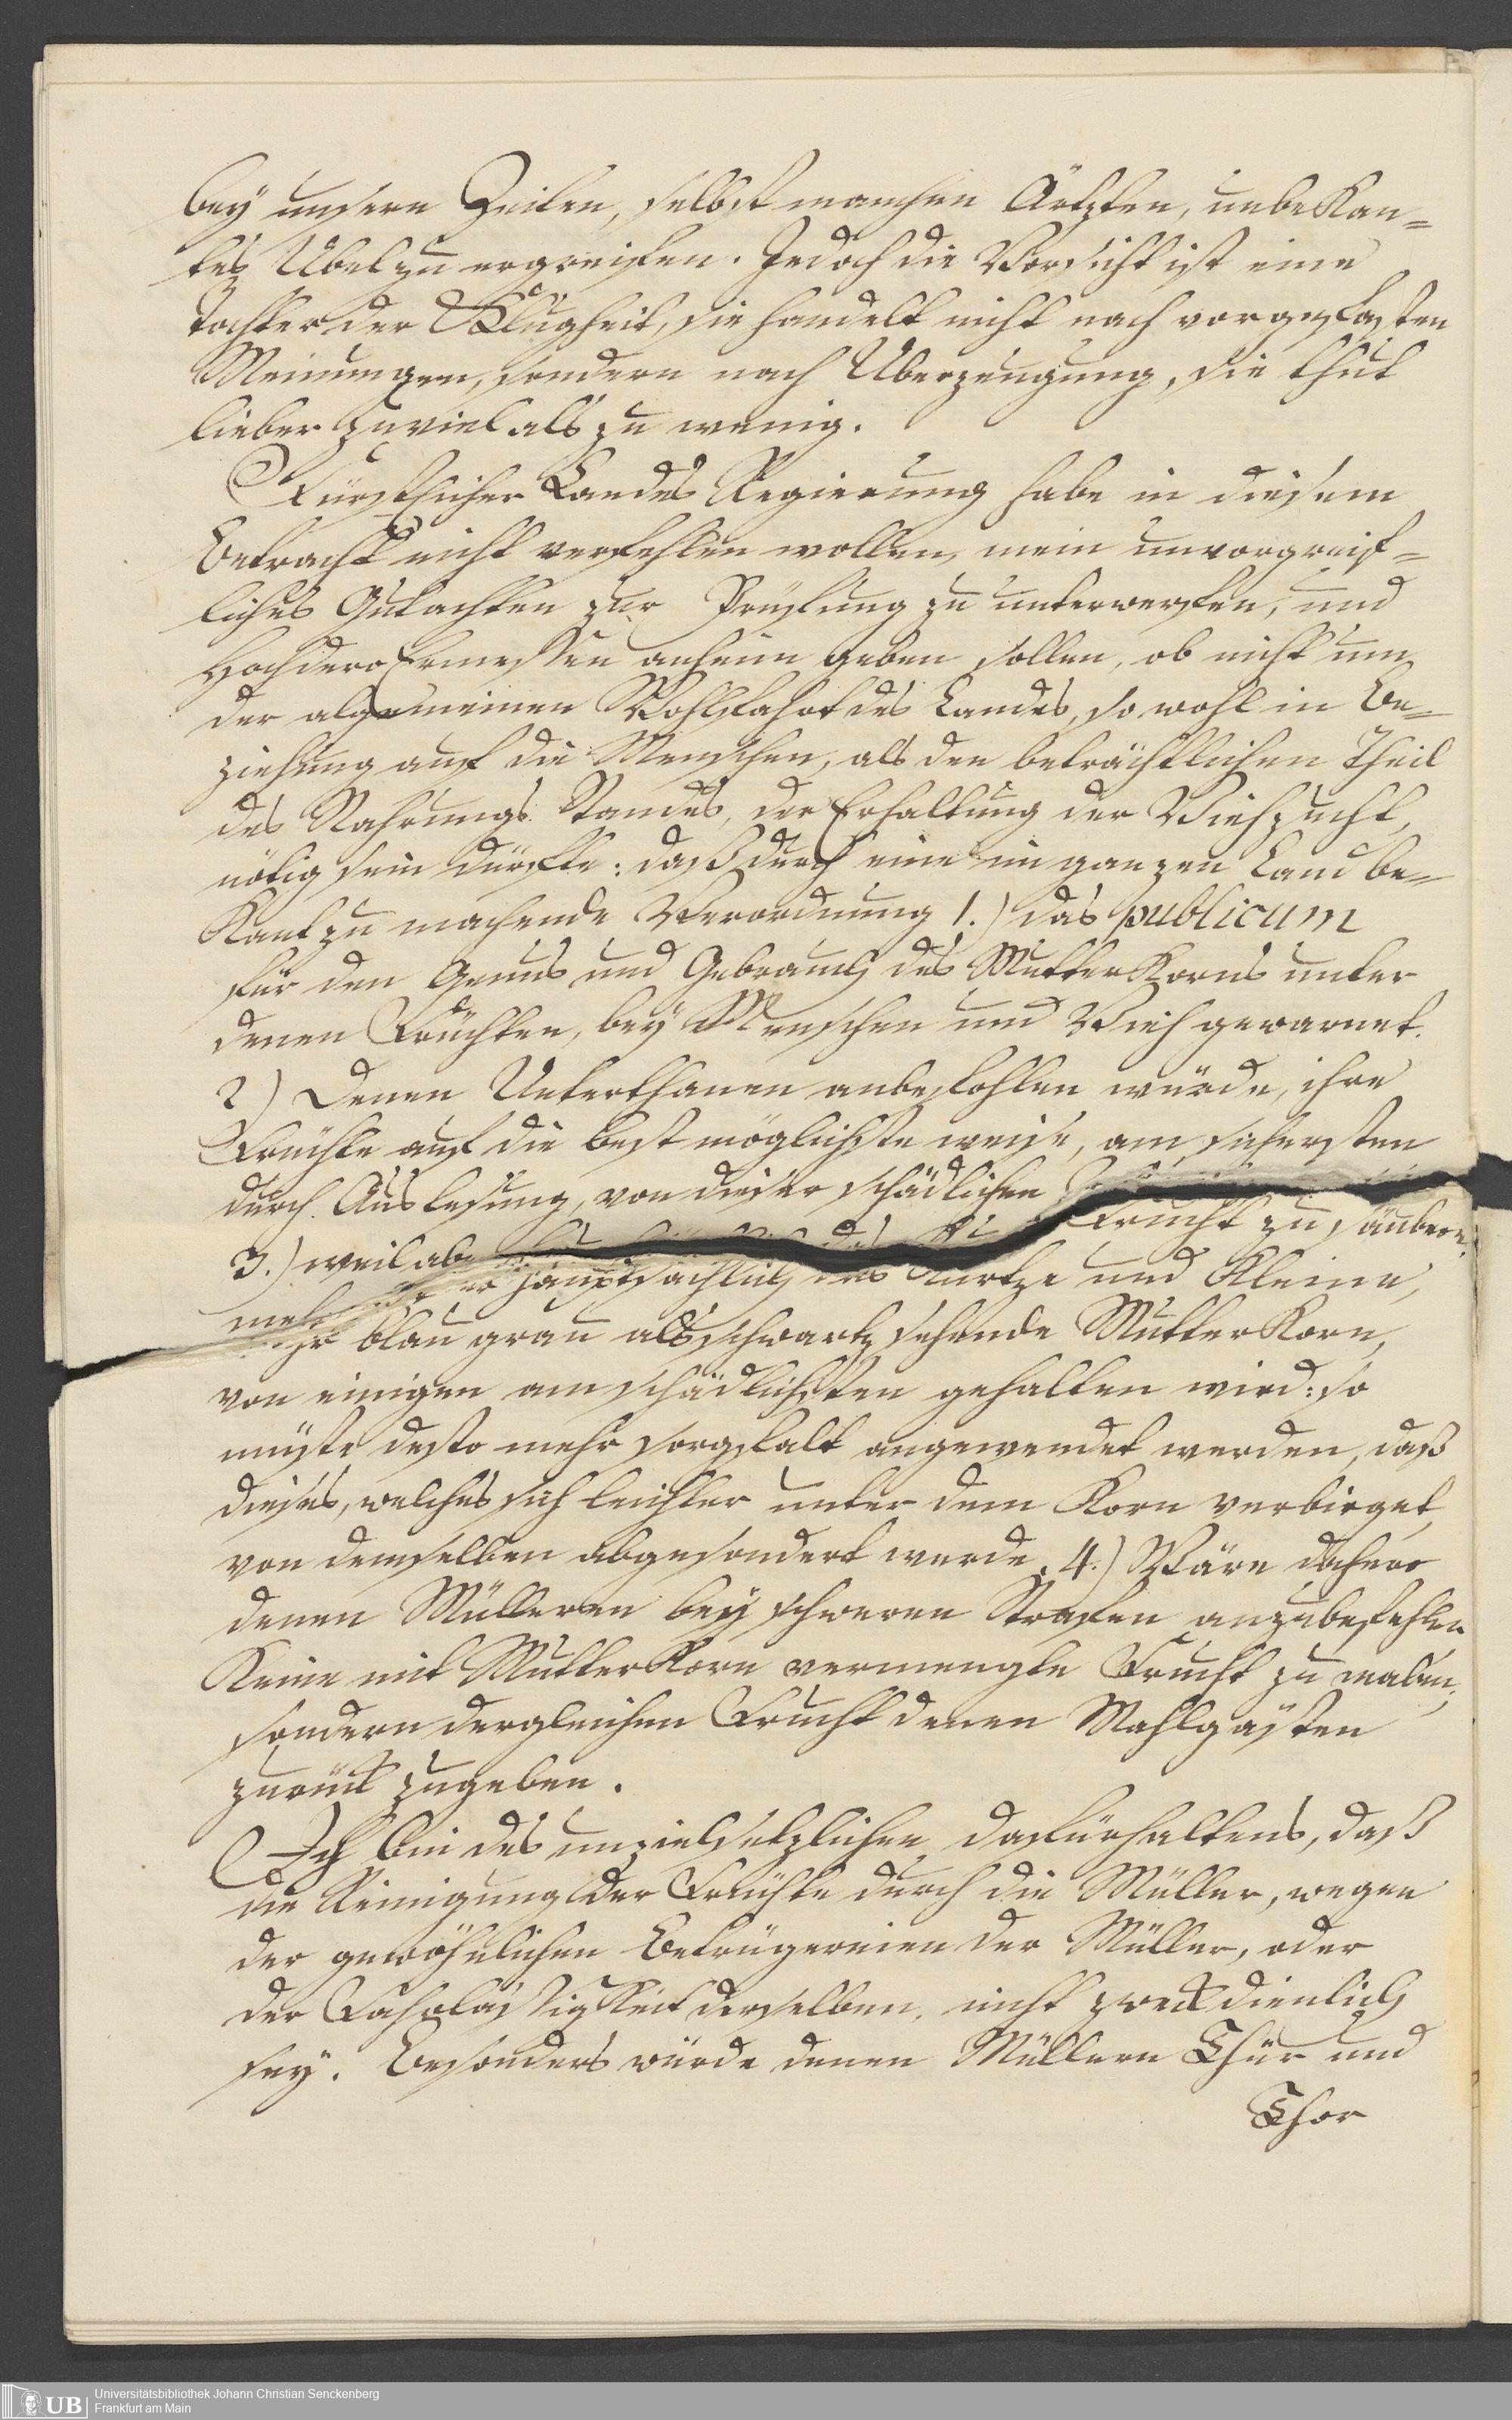 bey unsern Zeiten, selbst manchen Ärtzten, unbekan=
tes Übel zu ergreifen. Jedoch die Vorsicht ist eine
Tochter der Klugheit, sie handelt nicht nach vorgefasten
Meinungen, sondern nach Überzeugung, sie thut
lieber zu viel als zu wenig.
Fürstlicher Landes Regierung habe in diesem
Betracht nicht verfehlen wollen, mein unvorgreif=
liches Gutachten zur Prüfung zu unterwerfen, und
Hochdero Ermessen anheim geben sollen, ob nicht um
der algemeinen Wohlfahrt des Landes, so wohl in Be=
ziehung auf die Menschen, als den beträchtlichen Theil
des Nahrungs Standes, der Erhaltung der Viehzucht,
nötig sein dürfte: daß durch eine im ganzen Land be=
kant zu machende Verordnung 1.) das publicum
für den Genus und Gebrauch des Mutterkorns unter
denen Früchten, bey Menschen und Vieh gewarnet.
2) Denen Unterthanen anbefohlen würde, ihre
Früchte auf die best möglichste weise, am sichersten
durch Auslesung, von dieser schädlichen Frucht zu säubern.
3.) weil aber hauptsächlich das Kurtze und Kleine,
mehr blau grau als schwartz sehende Mutterkorn,
von einigen am schädlichsten gehalten wird: so
müste desto mehr sorgfalt angewendet werden, daß
dieses, welches sich leichter unter dem Korn verbirget,
von demselben abgesondert werde. 4.) Wäre dahero
denen Mülleren bey schweren Strafen anzubefehlen
Keine mit Mutterkorn vermengte Frucht zu malen,
sondern dergleichen Frucht denen Mahlgästen
zurück zugeben.
Ich bin des unzielsetzlichen dafürhaltens, daß
die Reinigung der Früchte durch die Müller, wegen
der gewöhnlichen Betrügereien der Müller, oder
der Fahrlässigkeit derselben, nicht zweckdienlich
sey. Besonders würde denen Müllern Thür und
Thor
Universitätsbibliothek Johann Christian Senckenberg
UB
Frankfurt am Main